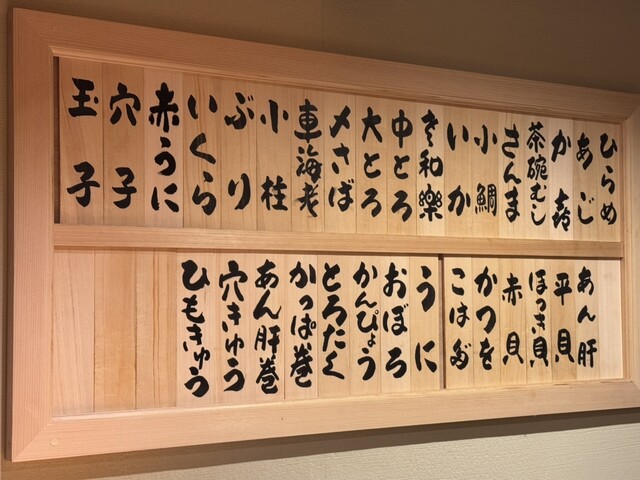 ひらめ
あじ
か喜
茶碗むし
さんま
小鯛
いか
さ和樂
中とろ
大とろ
〆さば
車海老
小柱
ぶり
いくら
赤うに
穴子
玉子
あん肝
平貝
ほっき貝
赤貝
かつを
こはだ
うに
おぼろ
かんぴょう
とろたく
かっぱ巻
あん肝巻
穴きゅう
ひもきゅう